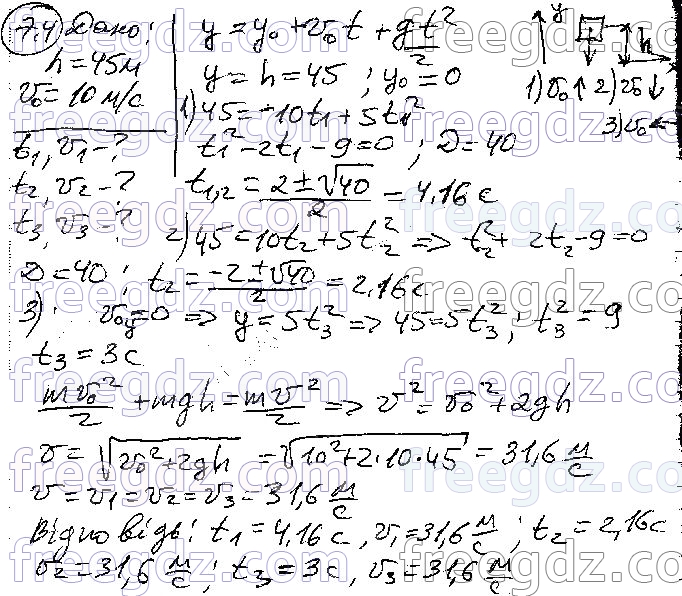 7.4 Дано:
h = 45м
v₀ = 10 м/с
t₁, v₁ - ?
t₂, v₂ - ?
t₃, v₃ - ?
y = y₀ + v₀t + gt²/2
y = h = 45 ; y₀ = 0
1) 45 = -10t₁ + 5t₁²
t₁² - 2t₁ - 9 = 0 ; D = 40
t₁,₂ = (2 ± √40)/2 = 4,16 с
2) 45 = 10t₂ + 5t₂² => t₂² + 2t₂ - 9 = 0
D = 40 ; t₂ = (-2 ± √40)/2 = 2,16с
3) v₀y = 0 => y = 5t₃² => 45 = 5t₃² ; t₃² = 9
t₃ = 3с
mv₀²/2 + mgh = mv²/2 => v² = v₀² + 2gh
v = √(v₀² + 2gh) = √(10² + 2·10·45) = 31,6 м/с
v = v₁ = v₂ = v₃ = 31,6 м/с
Відповідь: t₁ = 4,16 с, v₁ = 31,6 м/с ; t₂ = 2,16с
v₂ = 31,6 м/с ; t₃ = 3с, v₃ = 31,6 м/с
y
h
1) v₀↑ 2) v₀↓
3) v₀←
freegdz.com